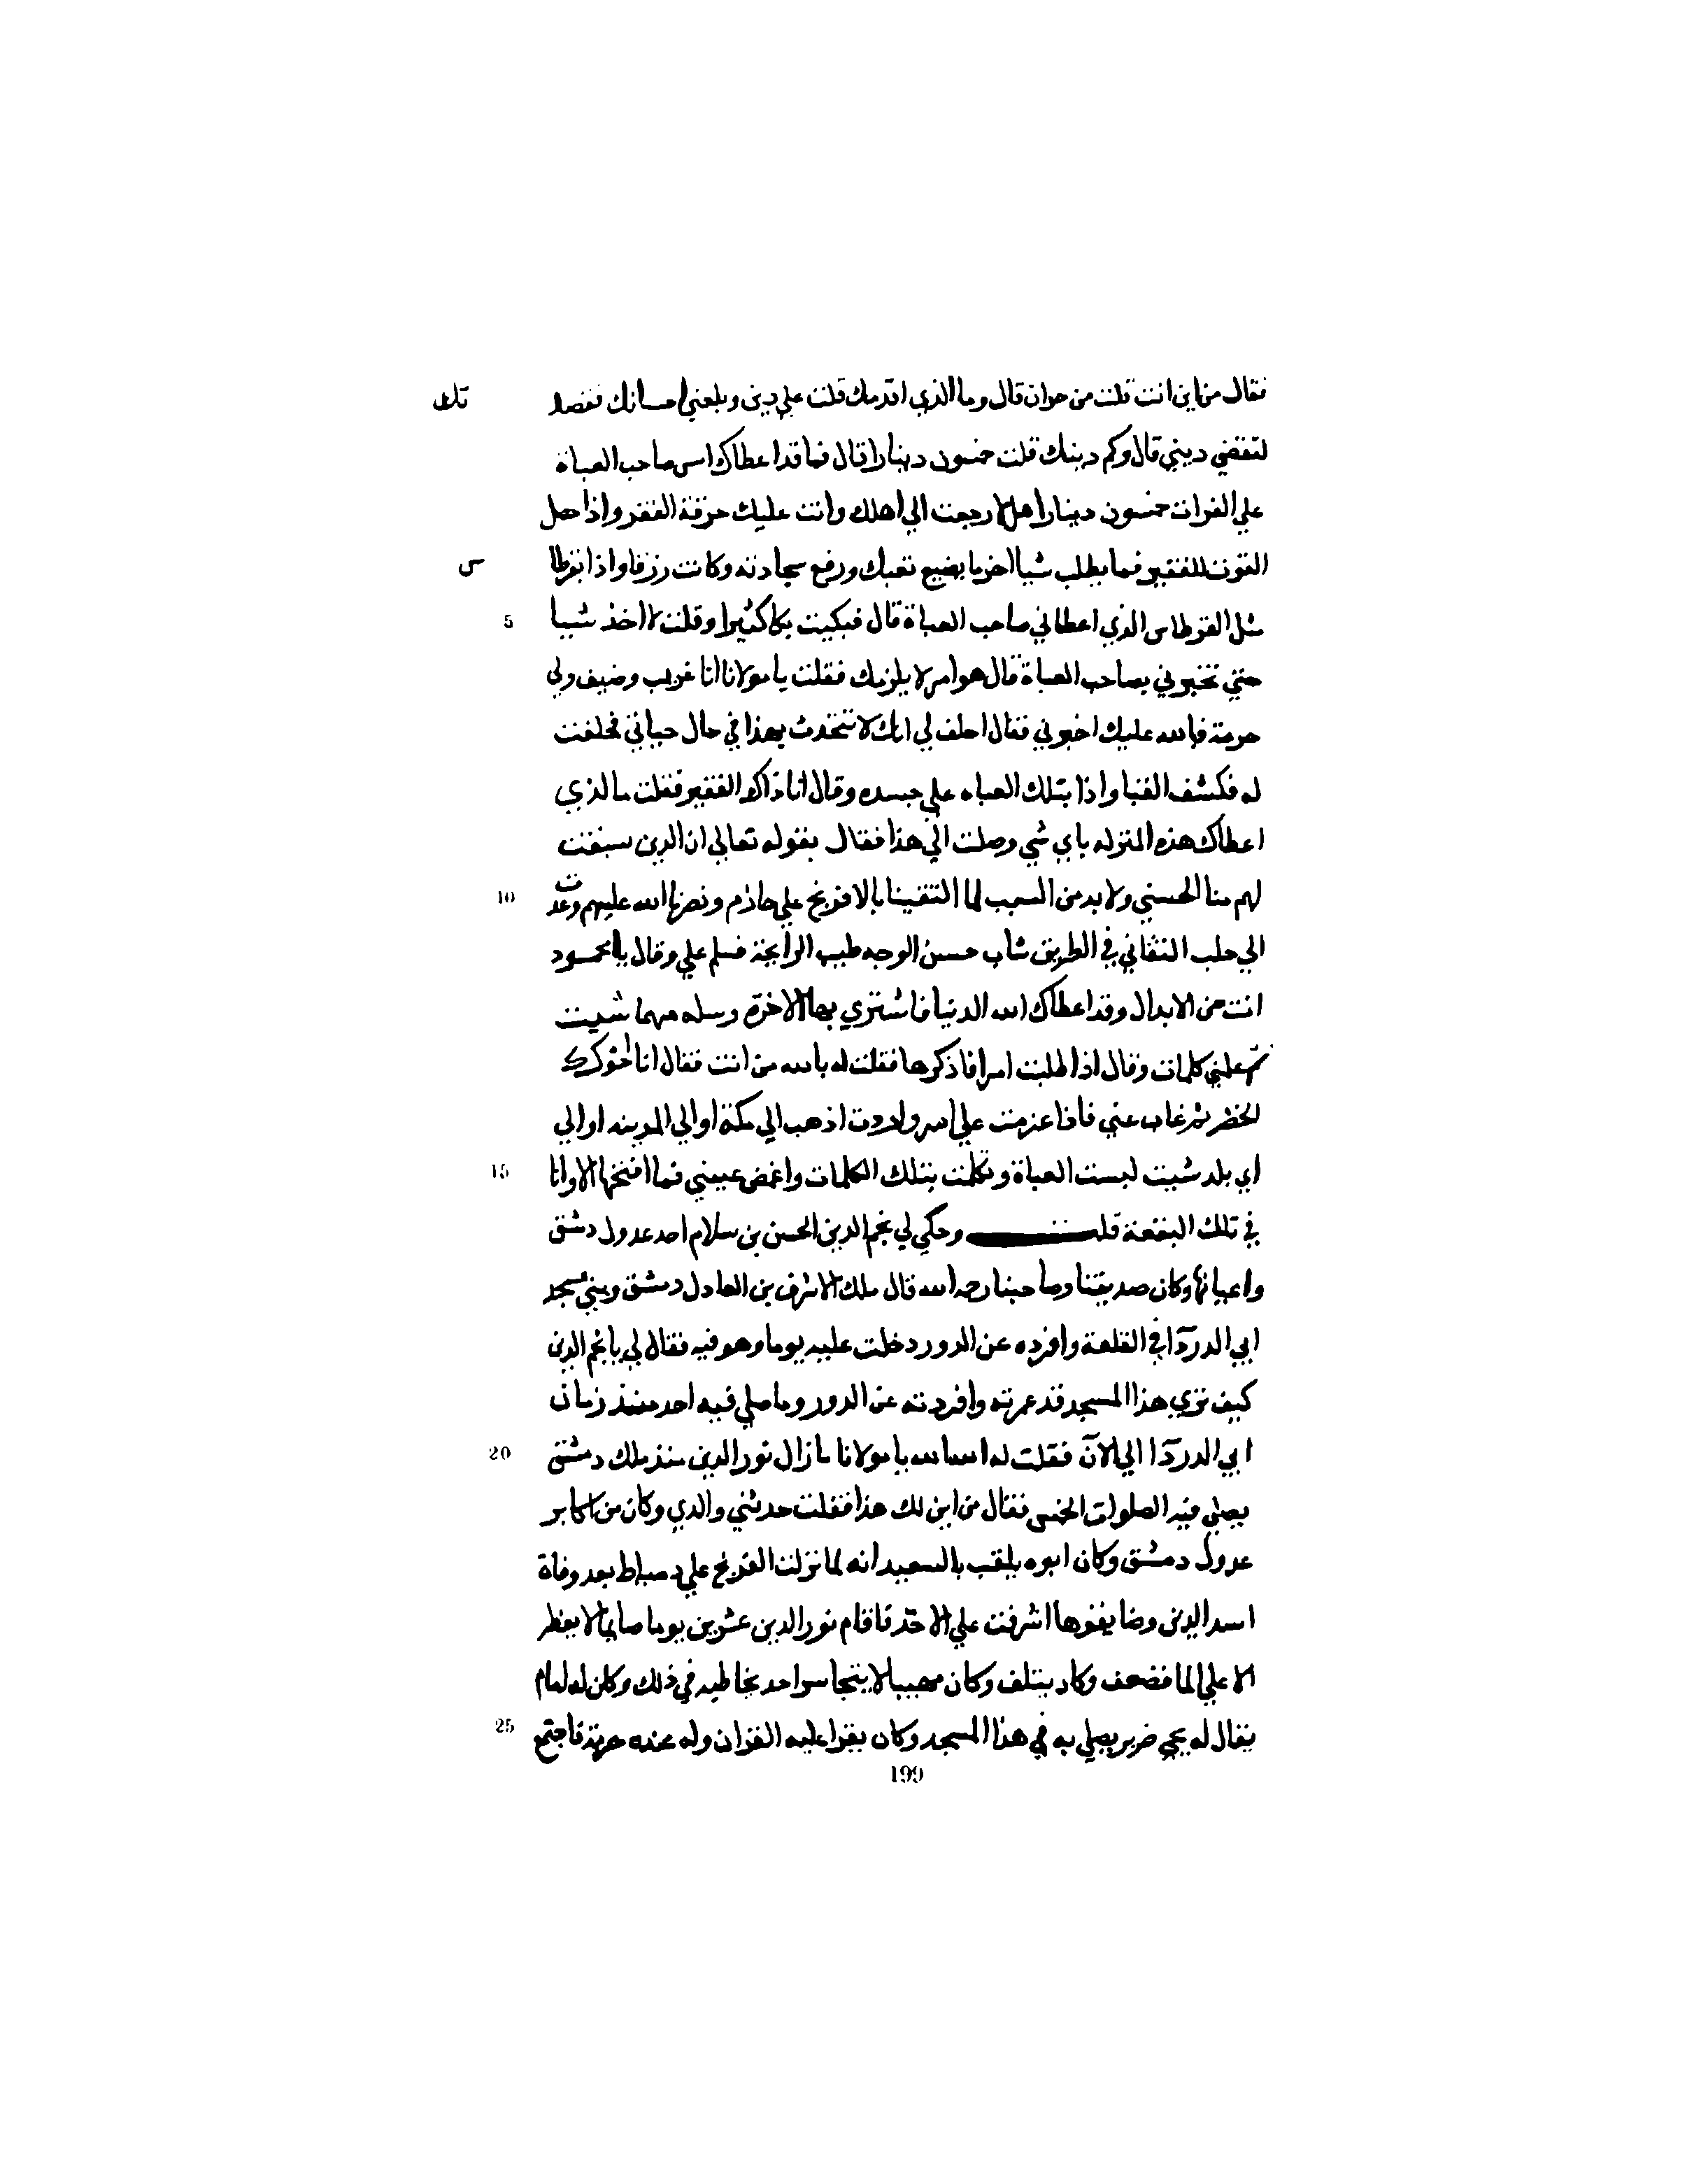 فقال من اين انت قلت من حران قال وما الذي اقدمك قلت علي دين وبلغني احسانك فقصد تك
لتقضي ديني قال وكم دينك قلت خمسون دينارا قال فما قد اعطاك امس صاحب العباة
علي الفرات خمسون دينارا هلا رجعت الي اهلك وانت عليك خرقة الفقر واذا حصل
القوت للفقير فما يطلب شيا اخر ما يضيع تعبك ورفع سجادته وكانت زرقا واذا بقرطا س
5 مثل القرطاس الذي اعطاني صاحب العباة قال فبكيت بكا كثيرا وقلت لا اخذ شييا
حتي تخبرني بصاحب العباة قال هو امر لا يلزمك فقلت يا مولانا انا غريب وضيف ولي
حرمة فبالله عليك اخبرني فقال احلف لي انك لا تتحدث بهذا في حال حياتي فحلفت
له فكشف القبا واذا بتلك العباه علي جسده وقال انا ذاك الفقير فقلت ما لذي
اعطاك هذه المنزله باي شي وصلت الي هذا فقال بقوله تعالي ان الذين سبقت
10 لهم منا الحسني ولا بد من السبب لما التقينا بالافرنج علي حارم ونصرنا الله عليهم وعدت
الي حلب التقاني في الطريق شاب حسن الوجه طيب الرايحة فسلم علي وقال يا محمود
انت من الابدال وقد اعطاك الله الدنيا فاشتري بها الاخرة وسله مهما شييت
ثم علمني كلمات وقال اذا طلبت امرا فاذكرها فقلت له بالله من انت فقال انا اخوك
الخضر ثم غاب عني فاذا عزمت علي امر واردت اذهب الي مكة او الي المدينه او الي
15 اي بلد شييت لبست العباة وتكلمت بتلك الكلمات واغمض عيبني فما افتحها الا وانا
في تلك البقعة قلت وحكي لي نجم الدين الحسن بن سلام احد عدول دمشق
واعيانها وكان صديقنا وصاحبنا رحمه الله قال ملك الاشرف بن العادل دمشق وبني مسجد
ابي الدردآ في القلعة وافرده عن الدور دخلت عليه يوما وهو فيه فقال لي يا نجم الدين
كيف تري هذا المسجد قد عمرته وافردته عن الدور وما صلي فيه احد منذ زمان
20 ابي الدردآ الي الان فقلت له الله الله يا مولانا ما زال نور الدين منذ ملك دمشق
يصلي فيه الصلوات الخمس فقال من اين لك هذا فقلت حدثني والدي وكان من اكابر
عدول دمشق وكان ابوه يلقب بالسعيد انه لما نزلت الفرنج علي دمياط بعد وفاة
اسد الدين وضايقوها اشرفت علي الاخذ فاقام نور الدين عشرين يوما صايما لا يفطر
الا علي الما فضعف وكاد يتلف وكان مهيبا لا يتجاسر احد يخاطبه في ذلك وكان له امام
25 يقال له يحي ضرير يصلي به في هذا المسجد وكان يقرا عليه القران وله عنده حرمة فاجتمع
199